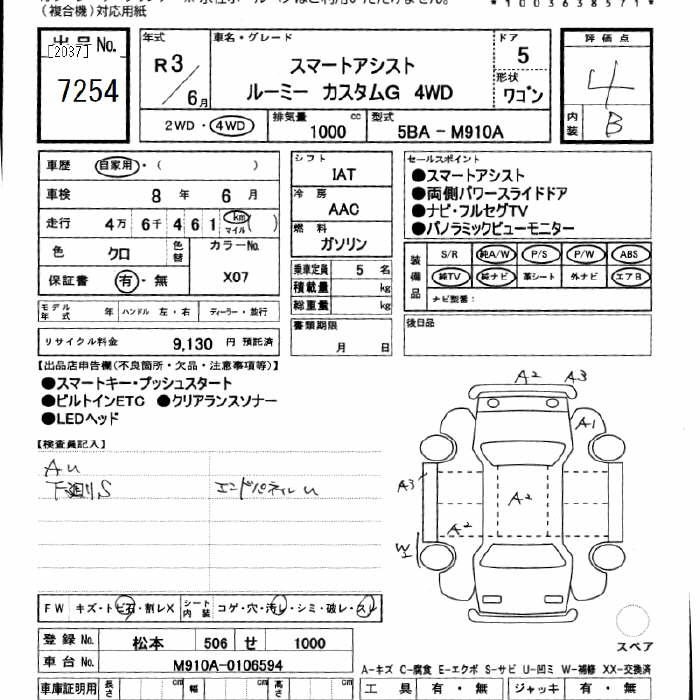 （複合機）対応用紙
*1003638571*
出品No.
[2037]
7254
年式 車名・グレード ドア
R3／6月
スマートアシスト
ルーミー カスタムG 4WD
5
形状
ワゴン
評価点
4
内装 B
2WD・4WD 排気量 1000 cc 型式 5BA－M910A
車歴 自家用・( )
車検 8年 6月
走行 4万6千461 km マイル ( )
色 クロ 色替 カラーNo. X07
保証書 有・無
シフト
IAT
冷房
AAC
燃料
ガソリン
乗車定員 5 名
積載量 kg
総重量 kg
書類期限
月 日
セールスポイント
●スマートアシスト
●両側パワースライドドア
●ナビ・フルセグTV
●パノラミックビューモニター
装備品 S/R 純A/W P/S P/W ABS
純TV 純ナビ 革シート 外ナビ エアB
ナビ型番：
後日品
モデル年式 年 ハンドル 左・右 ディーラー・並行
リサイクル料金 9,130 円 預託済
【出品店申告欄(不良箇所・欠品・注意事項等)】
●スマートキー・プッシュスタート
●ビルトインETC ●クリアランスソナー
●LEDヘッド
【検査員記入】
AU
下廻りS エンドパネルU
A2 A3
A1
A3
A2
A2
W1
FW キズ・トビ石・割レX シート内装 コゲ・穴・汚レ・シミ・破レ・スレ
スペア
登録No. 松本 506 せ 1000
車台No. M910A-0106594
A－キズ C－腐食 E－エクボ S－サビ U－凹ミ W－補修 XX－交換済
車庫証明用 長さ cm 幅 cm 高さ cm
工具 有・無 ジャッキ 有・無